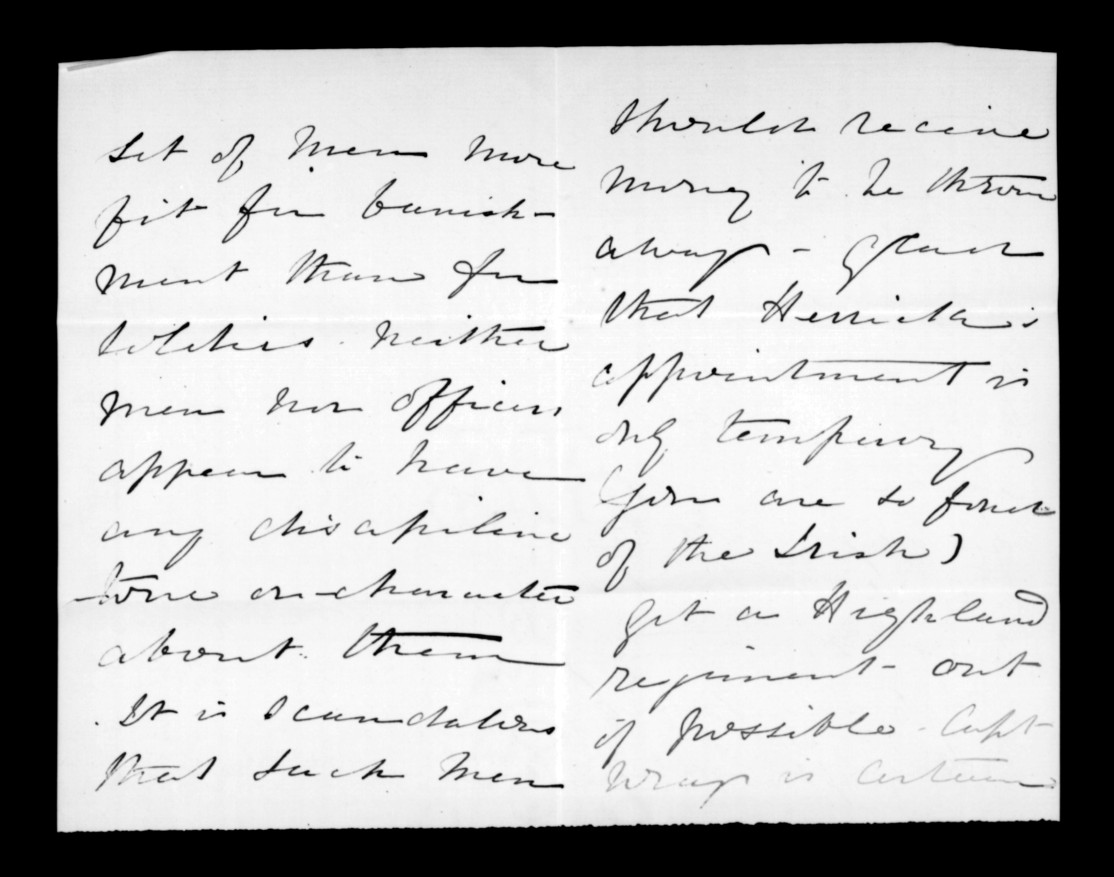 set of men more
fit for banish-
ment than for
soldiers. neither
men nor officers
appear to have
any discipline
tone or character
about them
. It is scandalous
that such men
should receive
money to be thrown
away - glad
that Herrick's
appointment is
only temporary
(you are so fond
of the Irish)
get a Highland
regiment out
if possible. Capt
Wray is certain